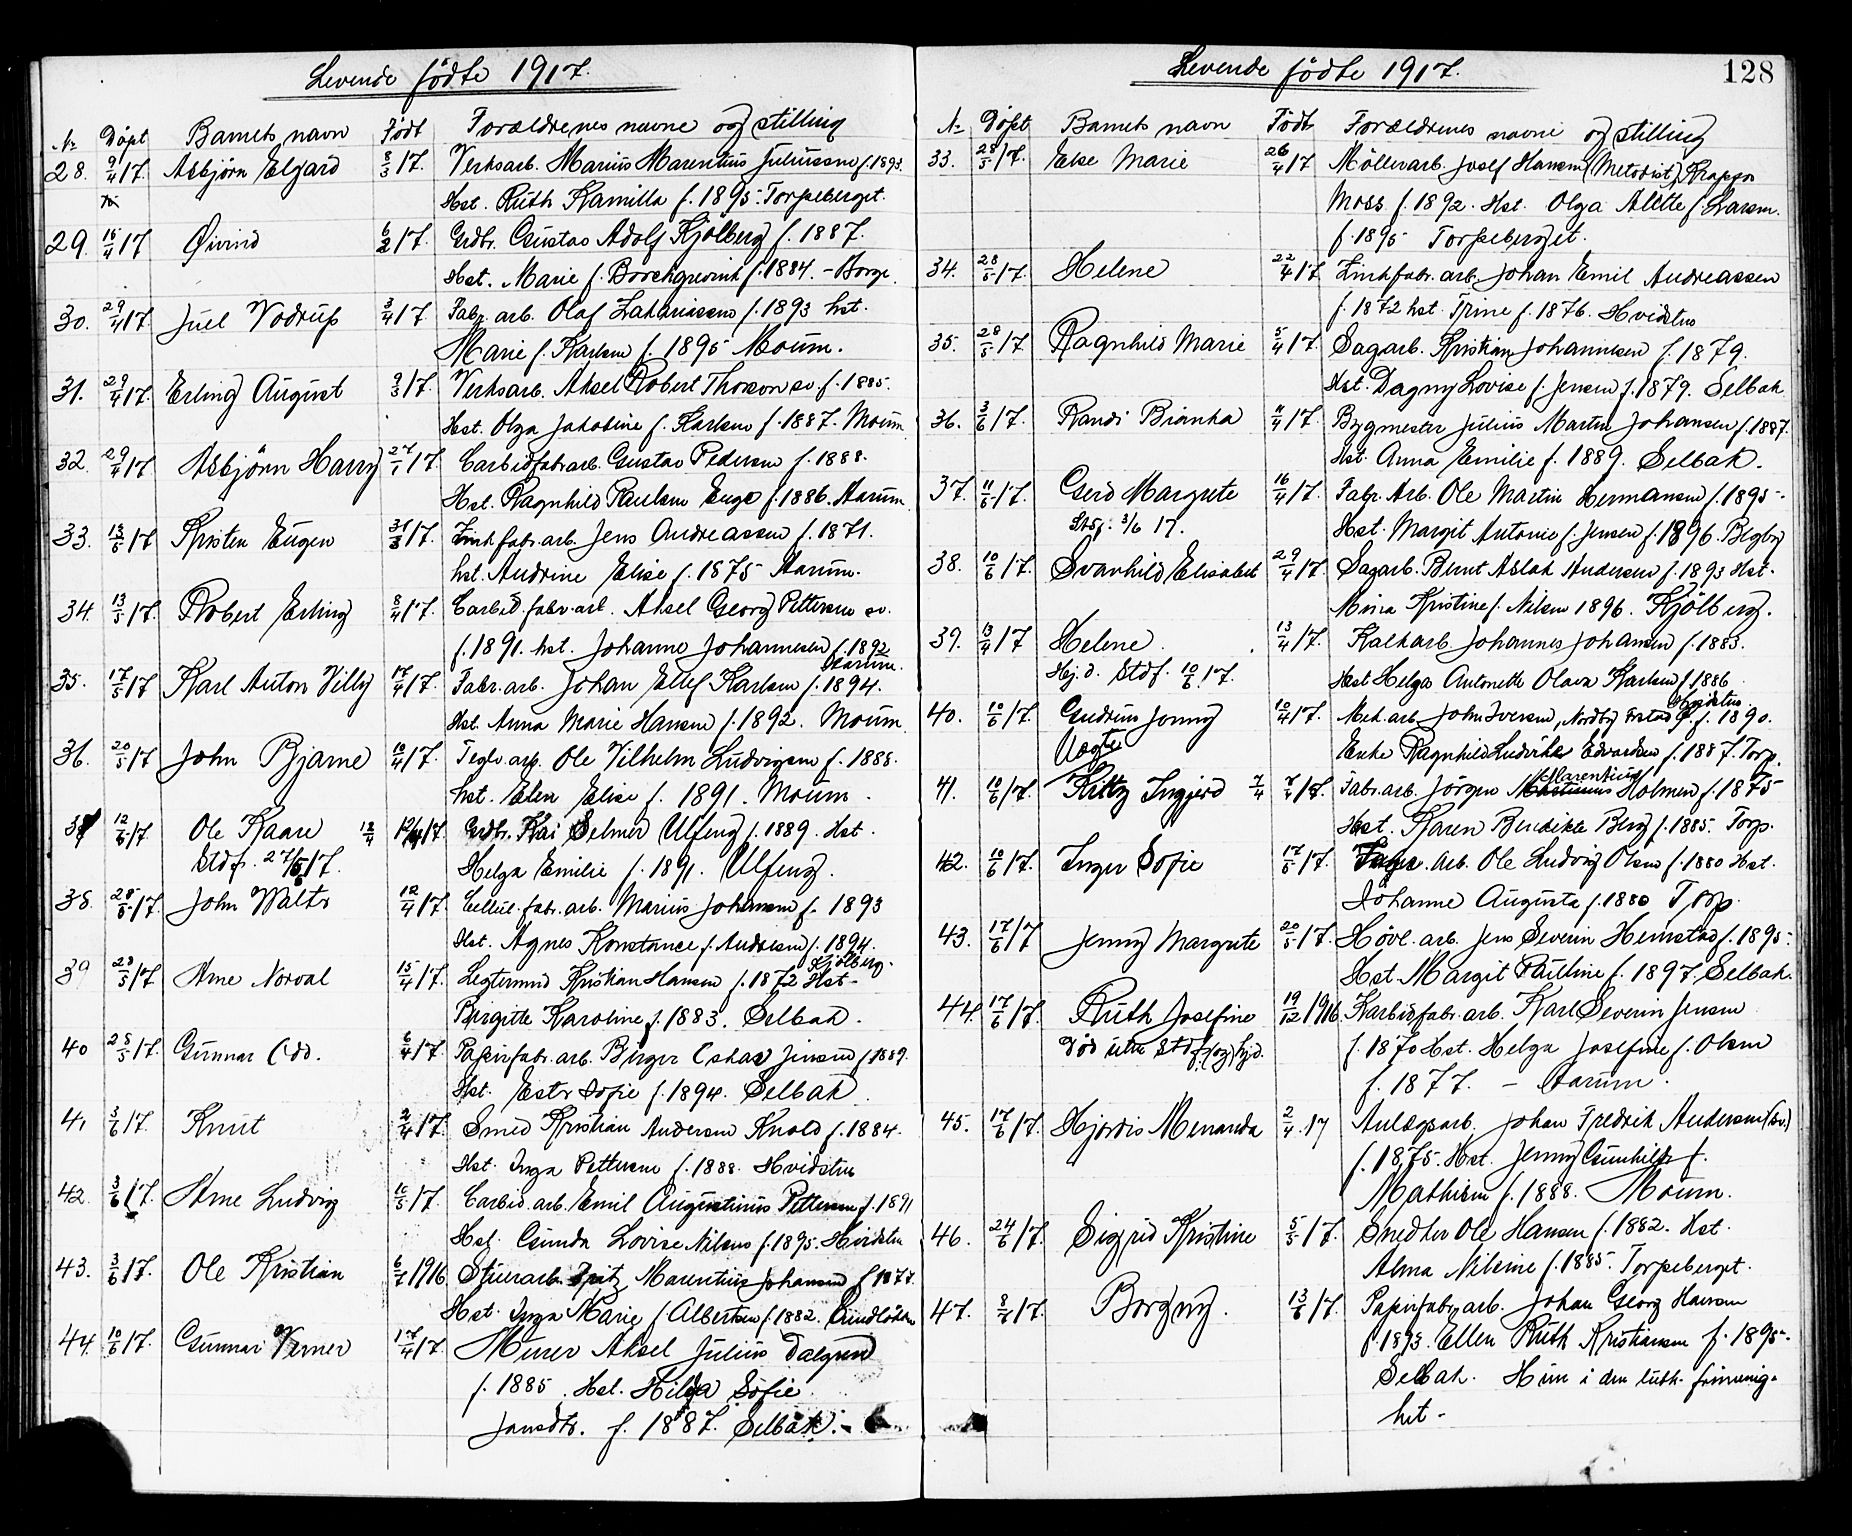 Levende födte 1917.
No Döpt Barnets navn Födt Forældrenes navne og stilling
28. 9/4 17. Asbjørn Elgard 8/3 17. Verksarb. Marius Marentius Juliussen f. 1893.
Hst. Ruth Kamilla f. 1895. Torpeberget.
29. 15/4 17 Øivind 6/2 17. Grdbr. Gustav Adolf Kjölberg f. 1887.
Hst. Marie f. Borchgrevink f. 1884. - Borge.
30. 29/4 17 Juel Vodrup 3/4 17. Fabr. arb. Olaf Zakariassen f. 1893 hst.
Marie f. Karlsen f. 1895 Moum.
31. 29/4 17. Erling August 9/3 17. Verksarb. Aksel Robert Thoreson sv. f. 1885.
Hst. Olga Jakobine f. Karlsen f. 1887. Moum
32. 29/4 17. Asbjörn Harry 27/1 17. Carbidfabr.arb. Gustav Pedersen f. 1888.
Hst. Ragnhild Paulsen Enge f. 1886. Aarum
33. 13/5 17 Kristen Eugen 31/3 17. Zinkfabr. arb. Jens Andreassen f. 1871.
hst. Andrine Elise f. 1875 Aarum.
34. 13/5 17. Robert Erling 8/4 17. Carbid. fabr. arb. Aksel Georg Pettersen sv.
f. 1891. hst. Johanne Johannesen f. 1892
Aarum.
35. 17/5 17 Karl Anton Villy 17/4 17. Fabr. arb. Johan Ellef Karlsen f. 1894.
Hst. Anna Marie Hansen f. 1892. Moum
36. 20/5 17 John Bjarne 10/4 17. Teglv. arb. Ole Vilhelm Ludvigsen f. 1888.
hst. Elen Elise f. 1891. Moum.
37 12/6 17 Ole Kaare 12/4 12/4 17. Grdbr. Kai Selmer Ulfeng f. 1889. Hst.
Stdf. 27/5 17. Helga Emilie f. 1891. Ulfeng.
38. 28/5 17. John Walter 12/4 17. Cellul. fabr. arb. Marius Johansen f. 1893
Hst. Agnes Konstance f. Andersen f. 1894.
Kjölberg.
39 28/5 17 Arne Norval 15/4 17. Legtermand Kristian Hansen f. 1872 Hst.
Birgitte Karoline f. 1883. Selbak.
40 28/5 17. Gunnar Odd. 6/4 17. Papirfabr. arb. Birger Oskar Jensen f. 1889.
Hst. Ester Sofie f. 1894. Selbak
41 3/6 17. Knut 2/4 17. Smed Kristian Andersen Knold f. 1884.
Hst. Inga Pettersen f. 1888. Hvidsten
42. 3/6 17. Arne Ludvig 15/5 17. Carbid. arb. Emil Augustinius Pettersen f. 1891
Hst. Gunda Lovise Nilsen f. 1895. Hvidsten
43. 3/6 17. Ole Kristian 6/7 1916 Stuerarb. Fritz Marentius Johansen f. 1877.
Hst. Inga Marie f Albertsen f. 1882.
44. 10/6 17. Gunnar Verner 17/4 17. Murer Aksel Julius Dalgren
f. 1885. Hst. Hilda Sofie
Jansdtr. f. 1887. Selbak.
Levende födte 1917. 128
No Döpt Barnets navn Födt Forældrenes navne og stilling
33. 28/5 17. Else Marie 26/4 17 Möllerarb. Josef Hansen (Metodist), Krapfos
Moss f. 1892. Hst. Olga Alette f. Larsen.
f. 1895 Torpeberget.
34. 28/5 17. Helene 22/4 17. Zinkfabr. arb. Johan Emil Andreassen
f. 1872 hst. Trine f. 1876. Hvidsten
35. 28/5 17 Ragnhild Marie 5/4 17. Sagarb. Kristian Johannesen f. 1879.
Hst. Dagny Lovise f. Jensen f. 1879. Selbak
36. 3/6 17. Randi Bianka 11/4 17. Bygmester Julius Martin Johansen f. 1887.
Hst. Anna Emilie f. 1889. Selbak.
37. 11/6 17. Gerd Margrete 16/4 17. Fabr. Arb. Ole Martin Hermansen f. 1895.
Stdf. 3/6 17. Hst. Margit Antonie f. Jensen f. 1896. Begby
38. 10/6 17. Svanhild Elisabet 29/4 17. Sagarb. Bernt Aslak Andersen f. 1893 Hst.
Mina Kristine f. Nilsen 1896. Kjölberg.
39. 13/4 17 Helene. 13/4 17. Kalkarb. Johannes Johansen f. 1883.
Hj. d. Stdf. 10/6 17. Hst Helga Antonette Olava Karlsen f. 1886
Hvidsten
40. 10/6 17. Gudrun Jonny 10/4 17. Mek. arb. John Iversen, Nordby f. 1890.
Uægte Enke Ragnhild Ludvikke Edvardsen f. 1887. Torp.
41. 10/6 17. Kitty Ingjerd 7/4 7/4 17. Fabr. arb. Jörgen Marentius Holmen f. 1875
Hst. Karen Benedikte Berg f. 1885. Torp.
42. 10/6 17. Inger Sofie 17/5 17. Arb. Ole Ludvig Olsen f. 1880 Hst.
Johanne Augusta f. 1880 Torp.
43. 17/6 17 Jenny Margrete 20/5 17. Hövl. arb. Jens Severin Hemstad f. 1895.
Hst. Margit Pauline f. 1897. Selbak.
44. 17/6 17. Ruth Josefine 19/12 1916. Karbidfabr. arb. Karl Severin Jensen
Död uten Stdf. (og) hjd. f. 1870 Hst. Helga Josefine f. Olsen
f. 1877. - Aarum.
45. 17/6 17. Hjördis Menanda 2/4 17 Anlægsarb. Johan Fredrik Andersen (sv.)
f. 1875. Hst. Jenny Gunhild f.
Mathisen f. 1888. Moum.
46. 24/6 17. Sigrid Kristine 5/5 17. Snedker Ole Hansen f. 1882. Hst.
Alma Nilsine f. 1885. Torpeberget.
47. 8/7 17. Borgny. 13/6 17. Papirfabr. arb. Johan Georg Hansen
f. 1893. Ellen Ruth Kristiansen f. 1895.
Selbak. Hun i den luth. frimenig-
het -